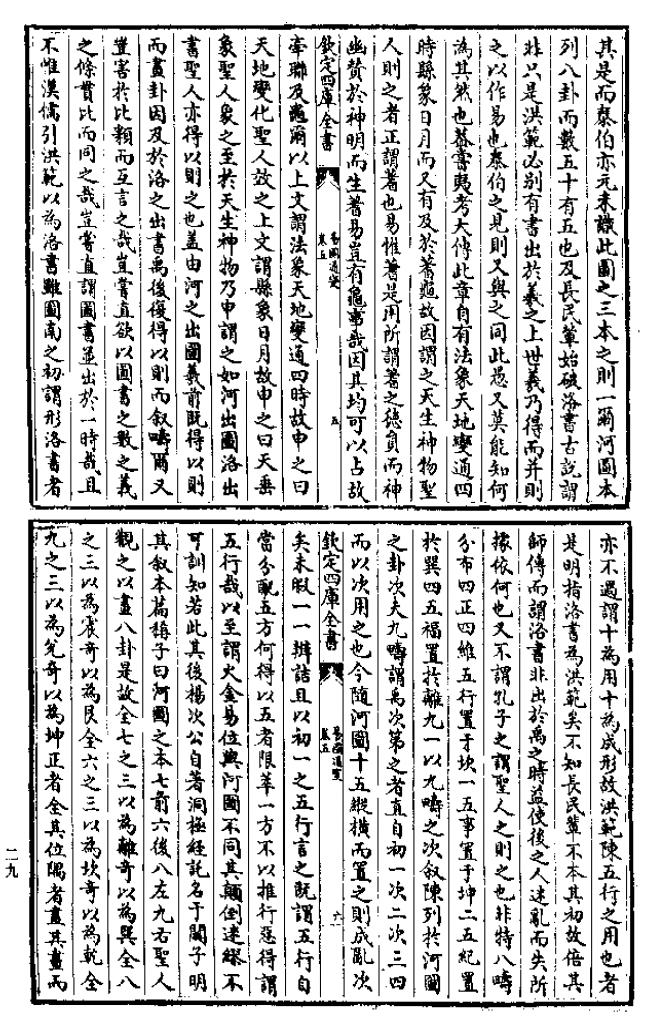 其是而泰伯亦元未識此圖之三本之則一爾河圖本
列八卦而數五十有五也及長民軰始破洛書古說謂
非只是洪範必别有書出於羲之上世羲乃得而并則
之以作易也泰伯之見則又與之同此愚又莫能知何
為其然也葢嘗夷考大傳此章自有法象天地變通四
時縣象日月而又有及於蓍龜故因謂之天生神物聖
人則之者正謂蓍也易惟蓍是用所謂蓍之德負而神
幽贊於神明而生蓍易豈有龜事哉因其均可以占故
欽定四庫全書
易圖通變
卷五
五
牽聯及龜爾以上文謂法象天地變通四時故申之曰
天地變化聖人效之上文謂縣象日月故申之曰天垂
象聖人象之至於天生神物乃申謂之如河出圖洛出
書聖人亦得以則之也蓋由河之出圖羲前既得以則
而畫卦因及於洛之出書禹後復得以則而叙疇爾又
豈害於比類而互言之哉豈嘗直欲以圖書之數之義
之條貫比而同之哉豈嘗直謂圖書並出於一時哉且
不惟漢儒引洪範以為洛書雖圖南之初謂形洛書者
亦不過謂十為用十為成形故洪範陳五行之用也者
是明指洛書為洪範矣不知長民軰不本其初故倍其
師傳而謂洛書非出於禹之時益使後之人迷亂而失所
據依何也又不謂孔子之謂聖人之則之也非特八疇
分布四正四維五行置于坎一五事置于坤二五紀置
於巽四五福置於離九一以九疇之次叙陳列於河圖
之卦次夫九疇謂禹次第之者直自初一次二次三四
而以次用之也今隨河圖十五縱横而置之則成亂次
欽定四庫全書
易圖通變
卷五
六
矣未暇一一辨詰且以初一之五行言之既謂五行自
當分配五方何得以五者限萃一方不以推行惡得謂
五行哉以至謂火金易位與河圖不同其顛倒迷繆不
可訓知若此其後楊次公自著洞極經託名于關子明
其叙本篇稱子曰河圖之本七前六後八左九右聖人
觀之以畫八卦是故全七之三以為離奇以為巽全八
之三以為震奇以為艮全六之三以為坎奇以為乾全
九之三以為兌奇以為坤正者全其位隅者盡其畫而
二九